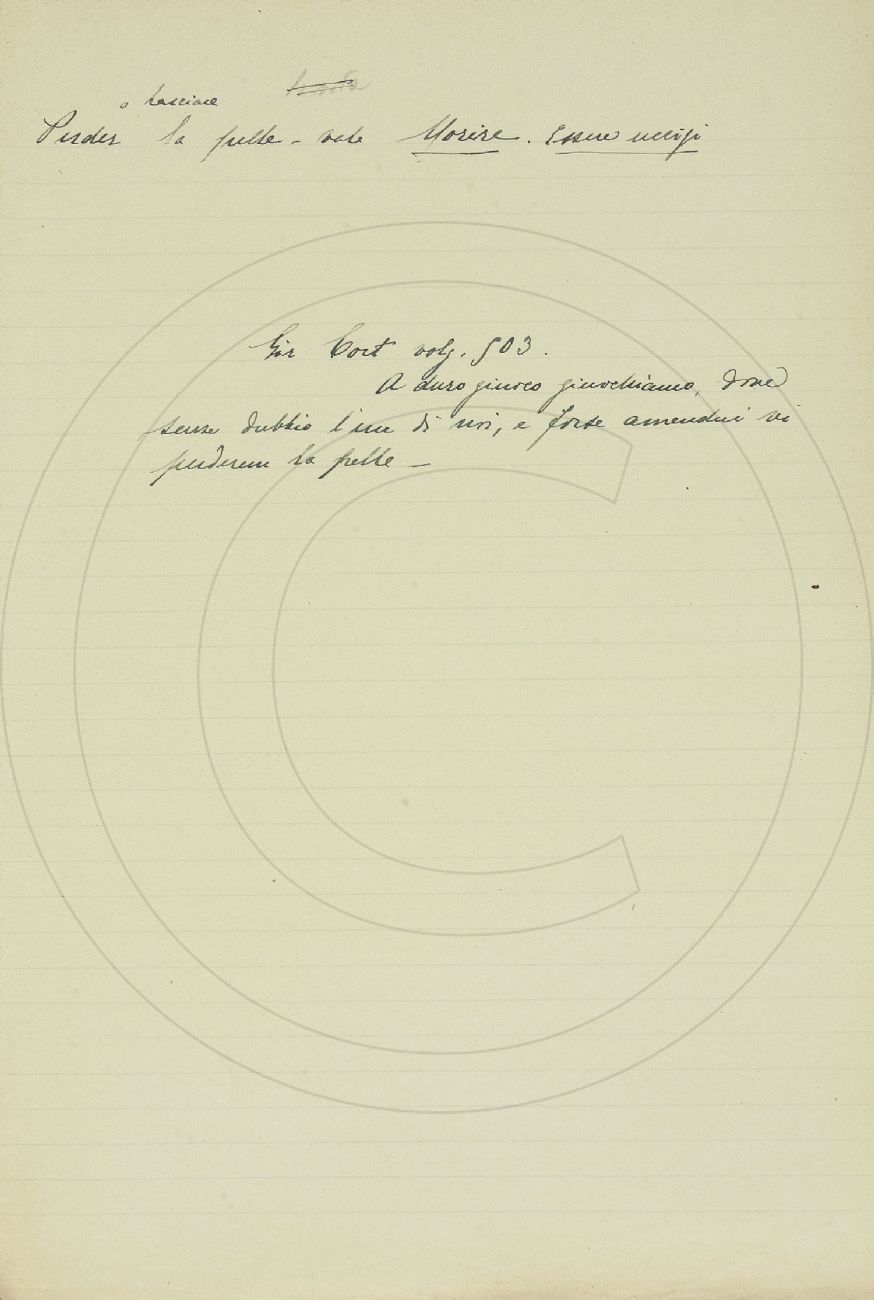 o Lasciare
Perder la pelle - vale Morire. Essere uccisi
Gir Cort volg. 503.
A duro giuoco giuochiamo, dove
senza dubbio l'un di noi, e forse amendui vi
perderem la pelle —